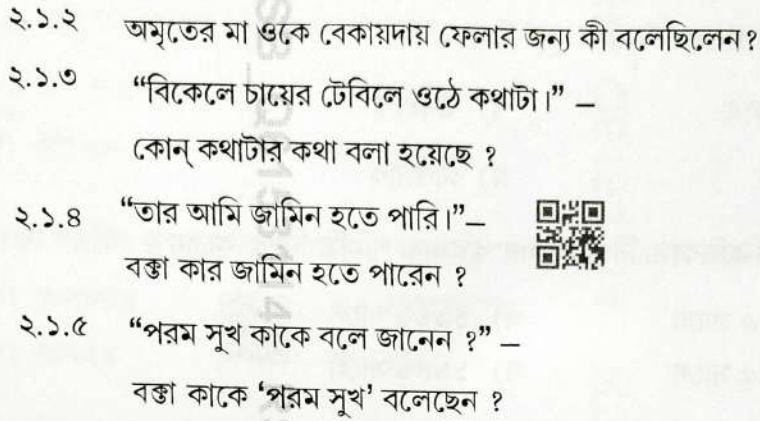 ২.১.২ অমৃতের মা ওকে বেকায়দায় ফেলার জন্য কী বলেছিলেন?
২.১.৩ “বিকেলে চায়ের টেবিলে ওঠে কথাটা।” –
কোন্ কথাটার কথা বলা হয়েছে ?
২.১.৪ “তার আমি জামিন হতে পারি।”–
বক্তা কার জামিন হতে পারেন ?
২.১.৫ “পরম সুখ কাকে বলে জানেন ?” –
বক্তা কাকে ‘পরম সুখ’ বলেছেন ?